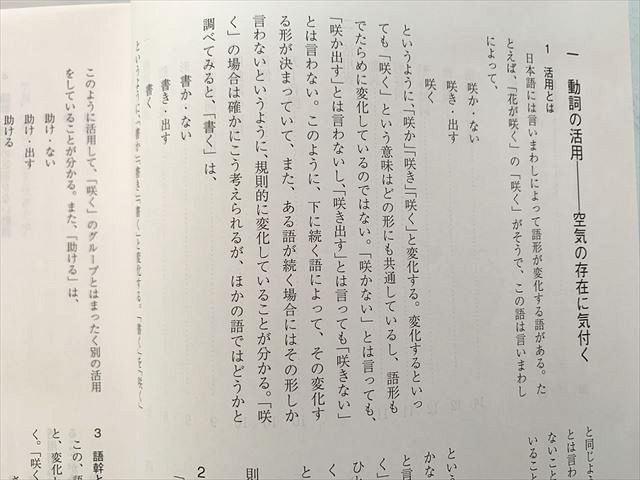 一　動詞の活用――空気の存在に気付く
1　活用とは
日本語には言いまわしによって語形が変化する語がある。た
とえば、「花が咲く」の「咲く」がそうで、この語は言いまわし
によって、
咲か・ない
咲き・出す
咲く
というように、「咲か」「咲き」「咲く」と変化する。変化するといっ
ても「咲く」という意味はどの形にも共通しているし、語形も
でたらめに変化しているのではない。「咲かない」とは言っても、
「咲か出す」とは言わないし、「咲き出す」とは言っても「咲きない」
とは言わない。このように、下に続く語によって、その変化す
る形が決まっていて、また、ある語が続く場合にはその形しか
言わないというように、規則的に変化していることが分かる。「咲
く」の場合は確かにこう考えられるが、ほかの語ではどうかと
調べてみると、「書く」は、
書か・ない
書き・出す
書く
というように、「書か」「書き」「書く」と変化する。「書く」を「咲く」
と同じよう
とは言わ
ないこと
いること
という
かな
と言
く」
ひと
と
則
2
このように活用して、「咲く」のグループとはまったく別の活用
をしていることが分かる。また、「助ける」は、
助け・ない
助け・出す
助ける
3　語幹と
この、語
と、変化
く。「咲く